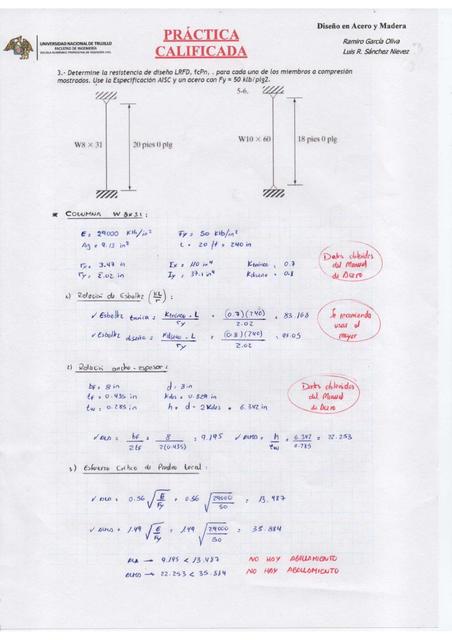 UNIVERSIDAD NACIONAL DE TRUJILLO
FACULTAD DE INGENIERÍA
ESCUELA ACADÉMICO PROFESIONAL DE INGENIERÍA CIVIL
PRÁCTICA
CALIFICADA
Diseño en Acero y Madera
Ramiro García Oliva
Luis R. Sánchez Nievez
3.- Determine la resistencia de diseño LRFD, fcPn, , para cada uno de los miembros a compresión
mostrados. Use la Especificación AISC y un acero con Fy = 50 klb/plg2.
5-6.
W8 × 31
20 pies 0 plg
W10 × 60
18 pies 0 plg
* COLUMNA W 8x31:
E = 29000 Klb/in² Fy = 50 klb/in²
Ag = 9.13 in² L = 20 ft = 240 in
rx = 3.47 in Ix = 110 in⁴ Kteórico = 0.7
ry = 2.02 in Iy = 37.1 in⁴ Kdiseño = 0.8
Datos obtenidos
del Manual
de Acero
1) Relación de Esbeltez (KL/r) :
✓ Esbeltz teorica = Kteorico . L / ry = (0.7)(240) / 2.02 = 83.168
✓ Esbeltz diseño = Kdiseño . L / ry = (0.8)(240) / 2.02 = 95.05
Se recomienda
usar el
mayor
2) Relación ancho - espesor :
bf = 8 in d = 8 in
tf = 0.435 in kdes = 0.829 in
tw = 0.285 in h = d - 2kdes = 6.342 in
Datos obtenidos
del Manual
de Acero
= bf / 2tf = 8 / 2(0.435) = 9.195 = h / tw = 6.342 / 0.285 = 22.253
3) Esfuerzo Crítico de Pandeo Local :
= 0.56 √E/Fy = 0.56 √29000/50 = 13.487
= 1.49 √E/Fy = 1.49 √29000/50 = 35.884
→ 9.195 < 13.487 NO HAY ABOLLAMIENTO
→ 22.253 < 35.884 NO HAY ABOLLAMIENTO